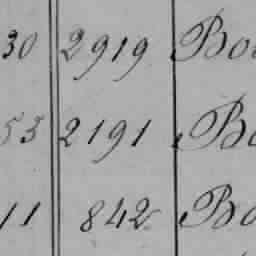 30 2919 Bo
53 2191 Bo
11 842 Bo